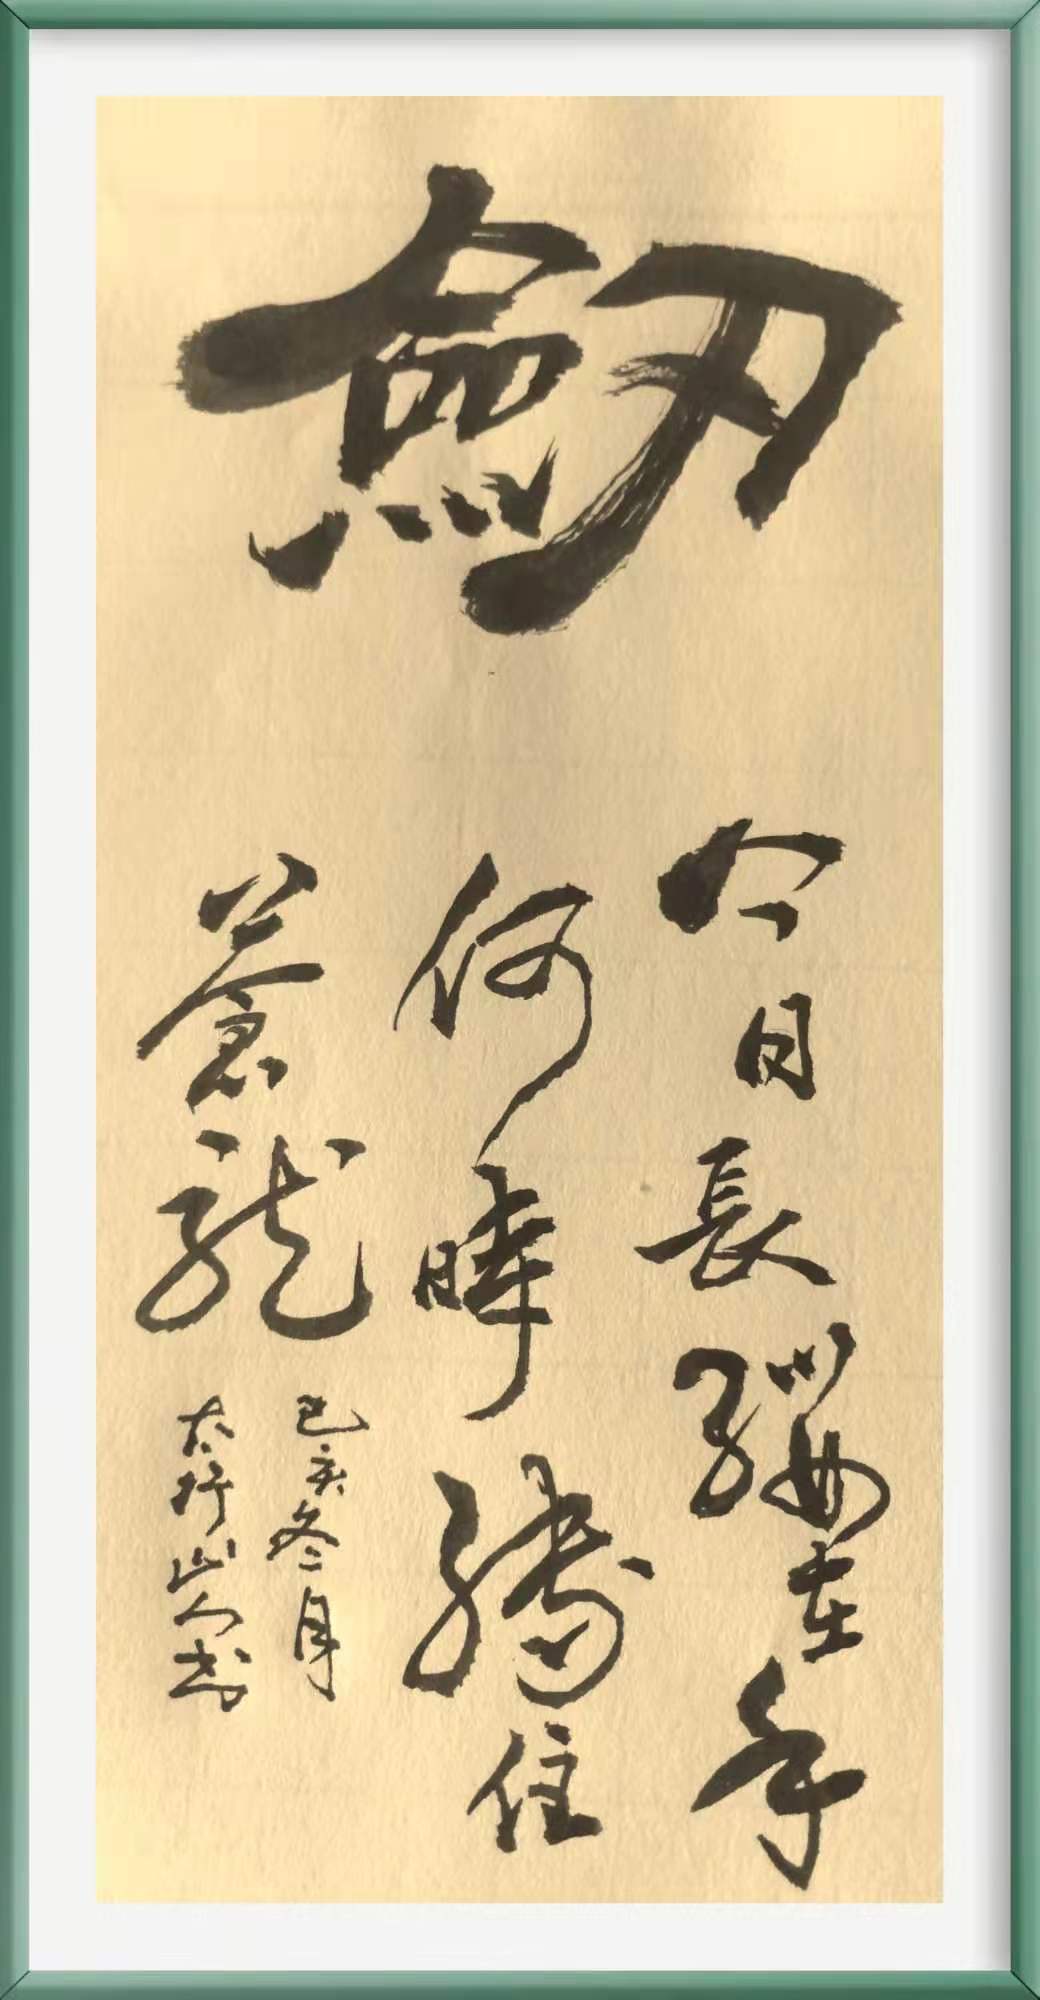 劒
今日長纓在手
何時縛住
蒼龍
己亥冬月
太行山人书